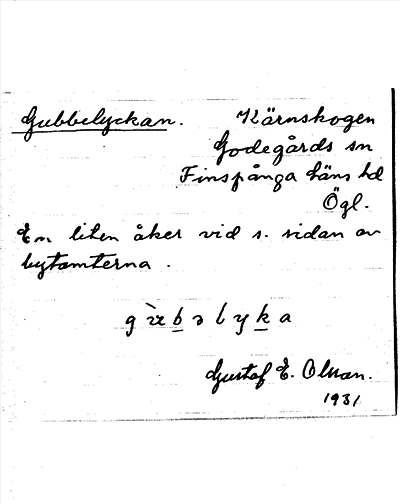 Gubbelyckan. Kärnskogen
Godegårds sn
Finspånga läns hd
Ögl.
En liten åker vid s. sidan av
bytomterna.
gùbəlyka
Gustaf E. Olsson.
1931